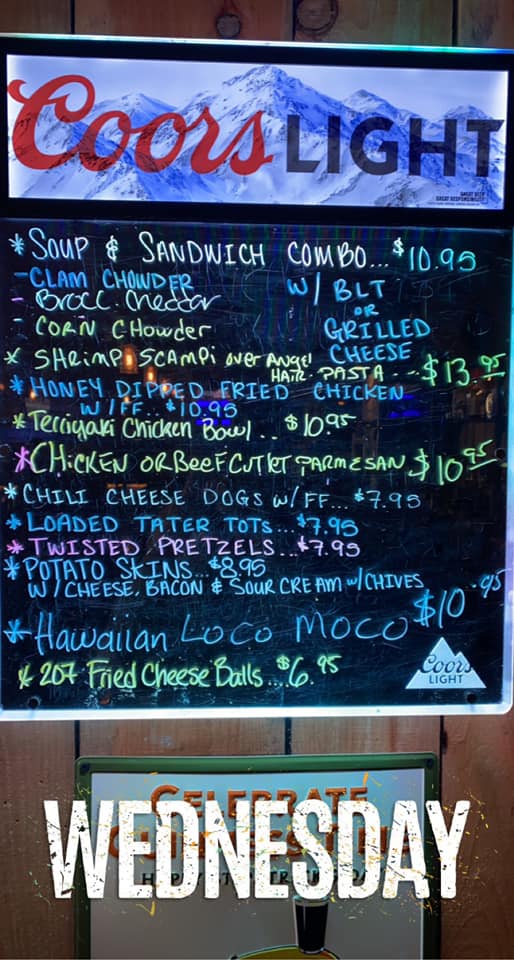 Coors LIGHT
GREAT BEER
GREAT RESPONSIBILITY
*SOUP & SANDWICH COMBO... $10.95
-CLAM CHOWDER W/ BLT
- Brocc. Cheddar OR
- CORN CHowder GRILLED
CHEESE
* SHRimp SCAMPi over ANGEl
HAIR PASTA ... $13.95
*HONEY DIPPED FRIED CHICKEN
W/FF.. $10.95
*Terriyaki Chicken Bowl .. $10.95
*CHiCKEN OR BeeF CUTlET PARMESAN $10.95
*CHILI CHEESE DOGS W/FF... $7.95
*LOADED TATER TOTS... $7.95
*TWISTED PRETZELS... $7.95
*POTATO SKINS... $8.95
W/CHEESE, BACON & SOUR CREAM W/CHIVES
*Hawaiian Loco Moco $10.95
* 207 Fried Cheese Balls... $6.95
Coors
LIGHT
CELEBRATE
WEDNESDAY